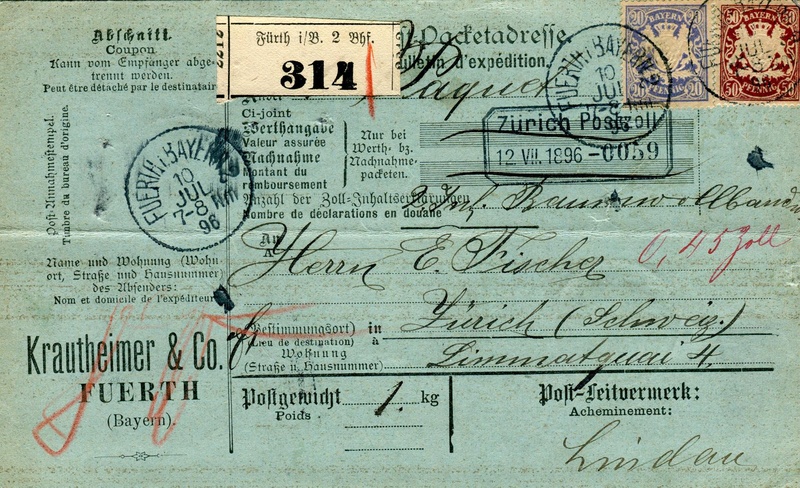 Abschnitt.
Coupon
Kann vom Empfänger abge-
trennt werden.
Peut être détaché par le destinataire
Post-Annahmestempel.
Timbre du bureau d'origine.
FUERTH I. BAYERN 2
10
JUL
7-8 Nm
96
Name und Wohnung (Wohn-
ort, Straße und Hausnummer)
des Absenders:
Nom et domicile de l'expéditeur
Krautheimer & Co.
FUERTH
(Bayern).
Fürth i/B. 2 Bhf.
314
Packetadresse
Bulletin d'expédition.
Paquet
Ci-joint
Werthangabe
Valeur assurée
Nachnahme
Montant du
remboursement
Nur bei
Werth- bz.
Nachnahme-
paketen.
FUERTH I. BAYERN 2
10
JUL
7-8 Nm
96
20 BAYERN 20
20 PFENNIG 20
50 BAYERN 50
50 PFENNIG 50
Zürich Postzoll
12 VII. 1896 -0059
Anzahl der Zoll-Inhaltserklärungen
Nombre de déclarations en douane
An
A
Herrn E. Fischer
0,45 Zoll
(Bestimmungsort) in
(Lieu de destination) à
Zürich (Schweiz)
Wohnung
(Straße u. Hausnummer)
Limmatquai 4.
Postgewicht 1. kg
Poids
Post-Leitvermerk:
Acheminement:
Lindau